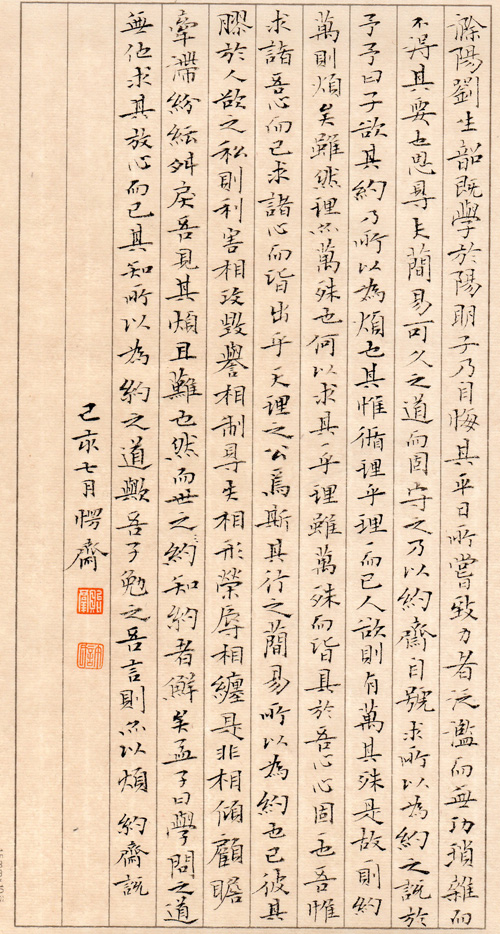 滁陽劉生韶既學於陽明子乃自悔其平日所嘗致力者泛濫而無功瑣雜而
不得其要也思得夫簡易可久之道而固守之乃以約齋自號求所以為約之說於
予予曰子欲其約乃所以為煩也其惟循理乎理一而已人欲則有萬其殊是故一則約
萬則煩矣雖然理亦萬殊也何以求其一乎理雖萬殊而皆具於吾心心固一也吾惟
求諸吾心而已求諸心而皆出乎天理之公焉斯其行之簡易所以為約也已彼其
膠於人欲之私則利害相攻毀譽相制得失相形榮辱相纏是非相傾顧瞻
牽滯紛紜舛戾吾見其煩且難也然而世之約知約者鮮矣孟子曰學問之道
無他求其放心而已其知所以為約之道歟吾子勉之吾言則亦以煩 約齋說
己亥七月愕齋